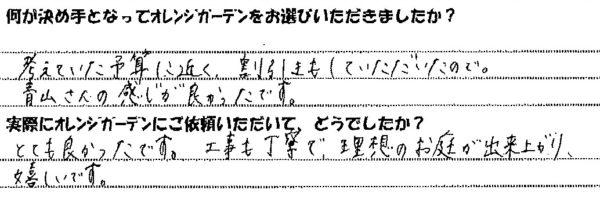 何が決め手となってオレンジガーデンをお選びいただきましたか？
考えていた予算に近く、割引きもしていただいたので。
青山さんの感じが良かったです。
実際にオレンジガーデンにご依頼いただいて、どうでしたか？
とても良かったです。工事も丁寧で、理想のお庭が出来上がり、
嬉しいです。